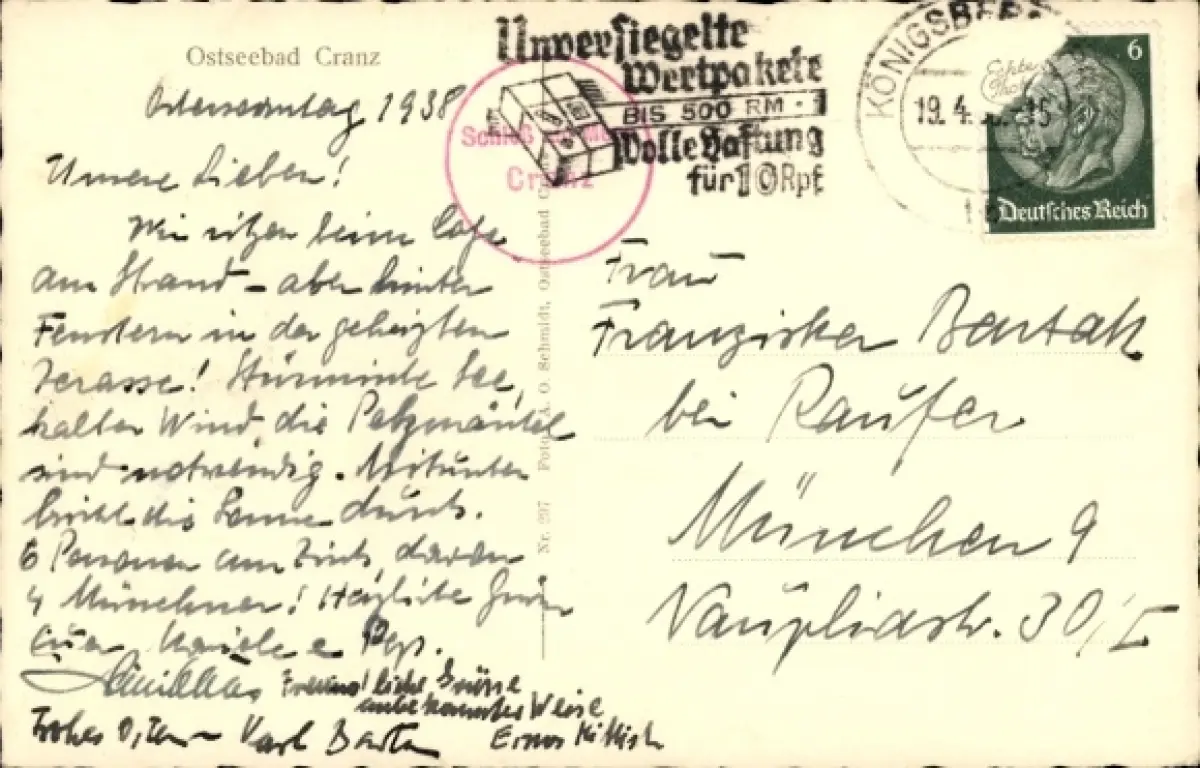 Ostseebad Cranz
Ostersonntag 1938
Unsere Lieben!
Wir sitzen beim Cafe
am Strand - aber hinter
Fenstern in der geheizten
Terasse! Stürmische See,
kalter Wind, die Pelzmäntel
sind notwendig. Mitunter
bricht die Sonne durch.
6 Personen am Tisch, davon
4 Münchner! Herzliche Grüße
Freundliche Grüsse
unbekannterweise
Frohes Ostern Karl
Ernst
Unversiegelte
Wertpakete
BIS 500 RM
Volle Haftung
für 10 Rpf
Schloß
Cranz
KÖNIGSBERG
19.4.
6
Deutsches Reich
Nr. 297 Foto A. O. Schmidt, Ostseebad
Frau
Franziska Bartak
bei Raufer
München 9
Naupliastr. 30/I